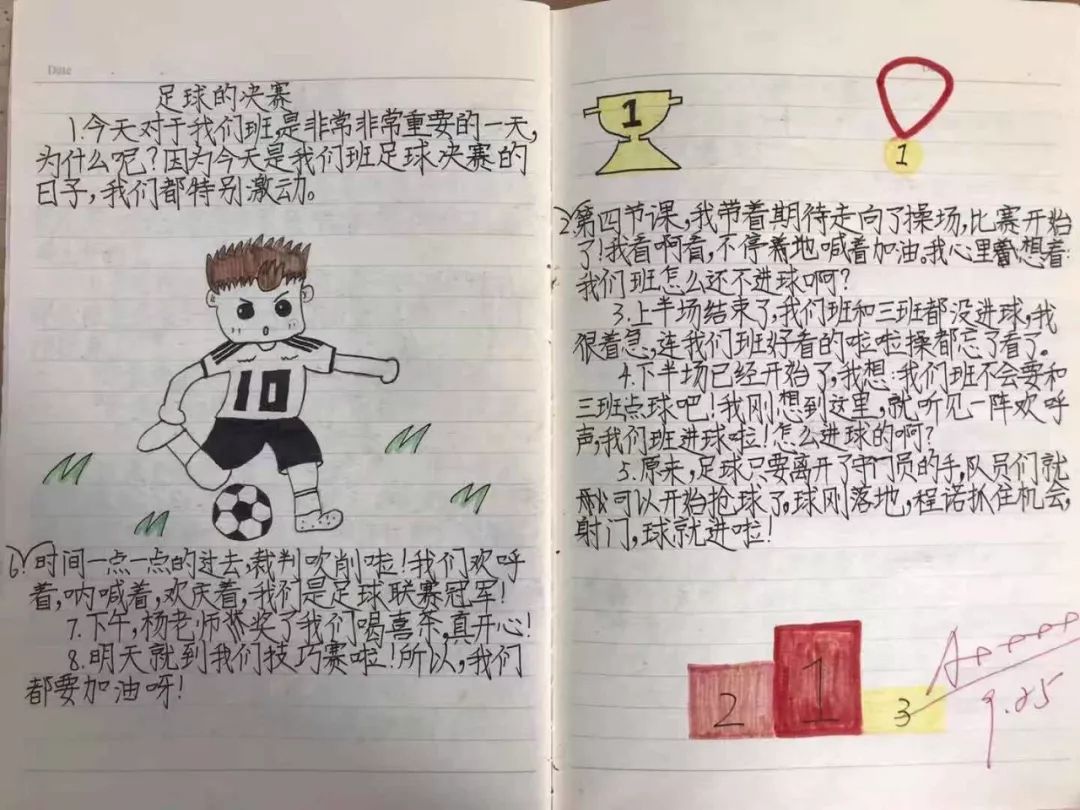 Date
足球的决赛
1.今天对于我们班,是非常非常重要的一天,
为什么呢?因为今天是我们班足球决赛的
日子,我们都特别激动。
10
6.时间一点一点的过去,裁判吹削啦!我们欢呼
着,呐喊着,欢庆着,我们是足球联赛冠军!
7.下午,杨老师奖了我们喝喜乐,真开心!
8.明天就到我们技巧赛啦!所以,我们
都要加油呀!
1
1
2.第四节课,我带着期待走向了操场,比赛开始
了!我看啊看,不停地喊着加油。我心里想着:
我们班怎么还不进球啊?
3.上半场结束了,我们班和三班都没进球,我
很着急,连我们班好看的啦啦操都忘了看了。
4.下半场已经开始了,我想:我们班不会要和
三班点球吧!我刚想到这里,就听见一阵欢呼
声,我们班进球啦!怎么进球的啊?
5.原来,足球只要离开了守门员的手,队员们就
可以开始抢球了,球刚落地,程诺抓住机会,
射门,球就进啦!
2 1 3
A++++
9.25